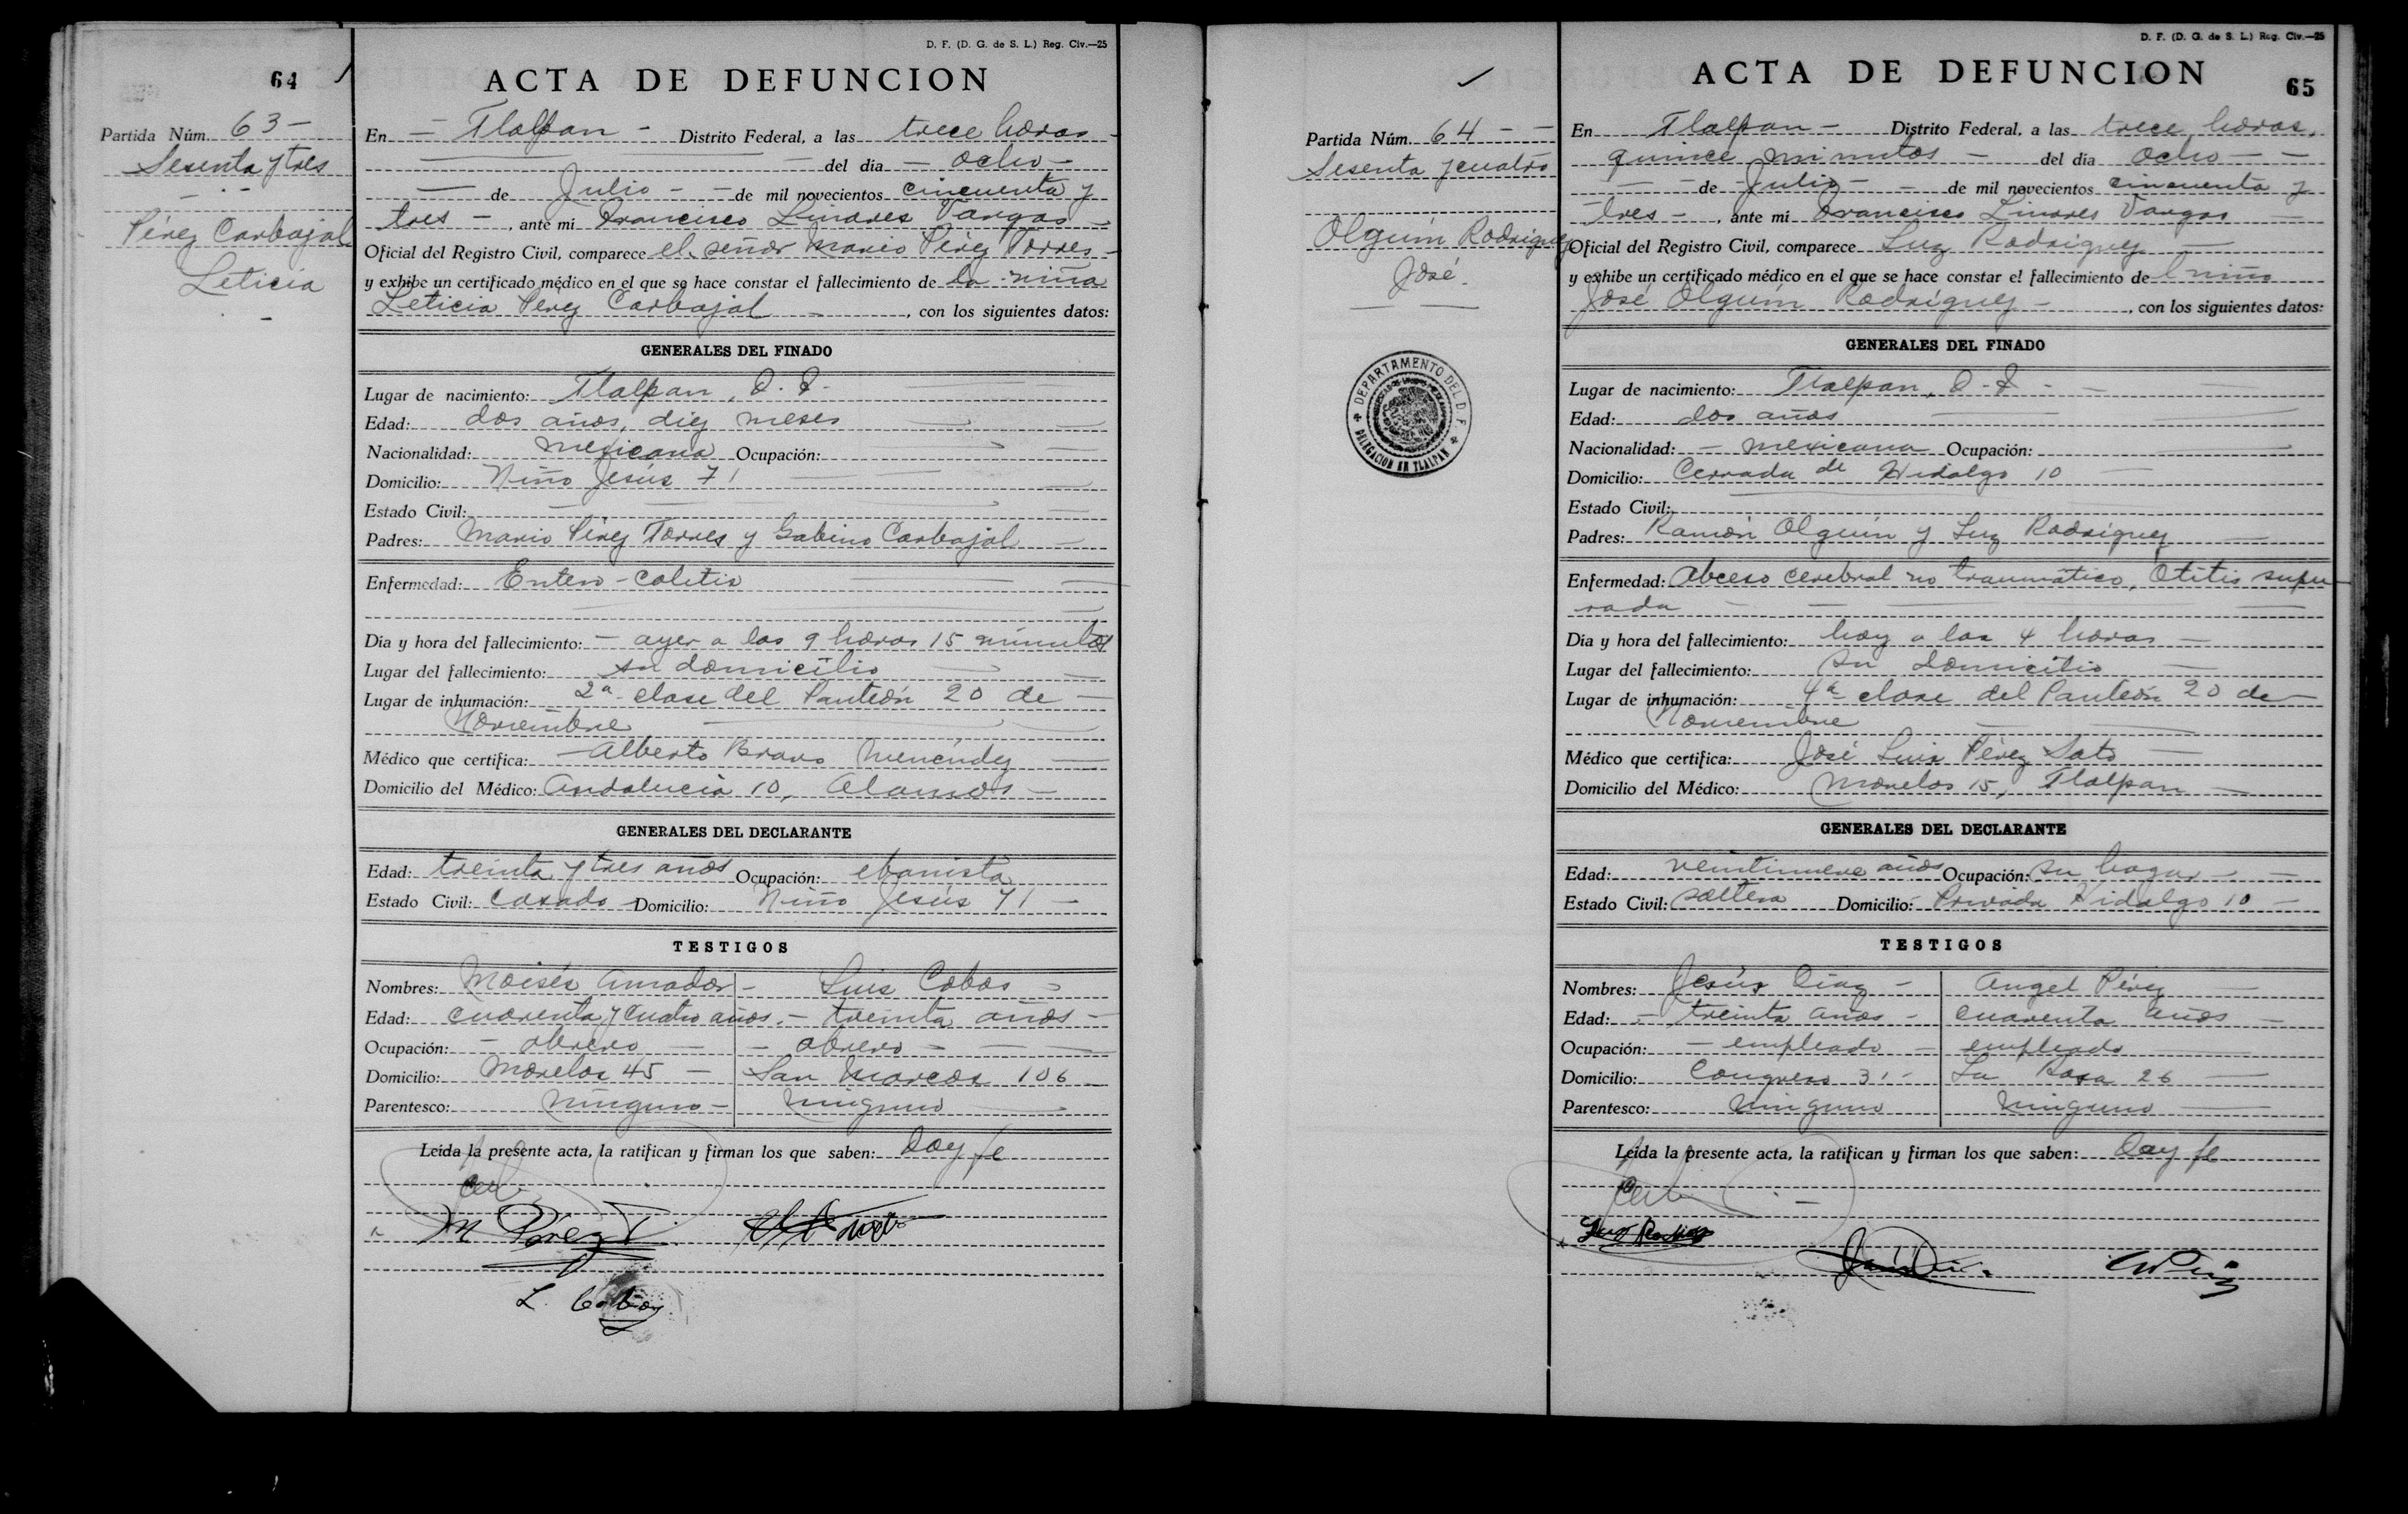 D. F. (D. G. de S. L.) Reg. Civ.—25
64
ACTA DE DEFUNCION
Partida Núm. 63 —
Sesenta y tres
Pérez Carbajal
Leticia
En — Tlalpan — Distrito Federal, a las trece horas —
— del dia — ocho —
— de Julio — — de mil novecientos cincuenta y
tres — , ante mi Francisco Linares Vargas —
Oficial del Registro Civil, comparece el señor Mario Pérez Torres —
y exhibe un certificado médico en el que se hace constar el fallecimiento de la niña
Leticia Pérez Carbajal — , con los siguientes datos:
GENERALES DEL FINADO
Lugar de nacimiento: Tlalpan, D. F.
Edad: dos años, diez meses
Nacionalidad: mexicana Ocupación:
Domicilio: Niño Jesús 71
Estado Civil:
Padres: Mario Pérez Torres y Gabina Carbajal —
Enfermedad: Entero-colitis
Dia y hora del fallecimiento: — ayer a las 9 horas 15 minutos
Lugar del fallecimiento: su domicilio
Lugar de inhumación: 2a clase del Panteón 20 de —
Noviembre
Médico que certifica: — Alberto Bravo Menéndez
Domicilio del Médico: Andalucia 10, Alamos —
GENERALES DEL DECLARANTE
Edad: treinta y tres años Ocupación: ebanista
Estado Civil: casado — Domicilio: Niño Jesús 71 —
TESTIGOS
Nombres: Moisés Amador — Luis Cobos
Edad: cuarenta y cuatro años. — treinta años —
Ocupación: — obrero — — obrero —
Domicilio: Morelos 45 — San Marcos 106
Parentesco: ninguno — ninguno
Leida la presente acta, la ratifican y firman los que saben: Doy fe
M Pérez T.
L. Cobos
D. F. (D. G. de S. L.) Reg. Civ.—25
ACTA DE DEFUNCION
65
Partida Núm. 64 — —
Sesenta y cuatro
Olguín Rodríguez
José.
DEPARTAMENTO DEL D. F.
DELEGACION EN TLALPAN
En Tlalpan — Distrito Federal, a las trece horas,
quince minutos — del dia ocho — —
— de Julio — — de mil novecientos cincuenta y
tres — , ante mi Francisco Linares Vargas —
Oficial del Registro Civil, comparece Luz Rodríguez —
y exhibe un certificado médico en el que se hace constar el fallecimiento de l niño
José Olguín Rodríguez — , con los siguientes datos:
GENERALES DEL FINADO
Lugar de nacimiento: Tlalpan, D. F. —
Edad: dos años
Nacionalidad: — mexicana Ocupación:
Domicilio: Cerrada de Hidalgo 10
Estado Civil:
Padres: Ramón Olguín y Luz Rodríguez
Enfermedad: Abceso cerebral no traumático, Otitis supu
rada
Dia y hora del fallecimiento: hoy a las 4 horas —
Lugar del fallecimiento: su domicilio
Lugar de inhumación: 4a clase del Panteón 20 de —
Noviembre
Médico que certifica: José Luis Pérez Soto
Domicilio del Médico: Morelos 15, Tlalpan —
GENERALES DEL DECLARANTE
Edad: veintinueve años Ocupación: su hogar —
Estado Civil: soltera Domicilio: Privada Hidalgo 10 —
TESTIGOS
Nombres: Jesús Díaz — Angel Pérez
Edad: — treinta años — cuarenta años
Ocupación: — empleado — empleado
Domicilio: Congreso 31 — La Rosa 26
Parentesco: ninguno ninguno
Leida la presente acta, la ratifican y firman los que saben: Doy fe